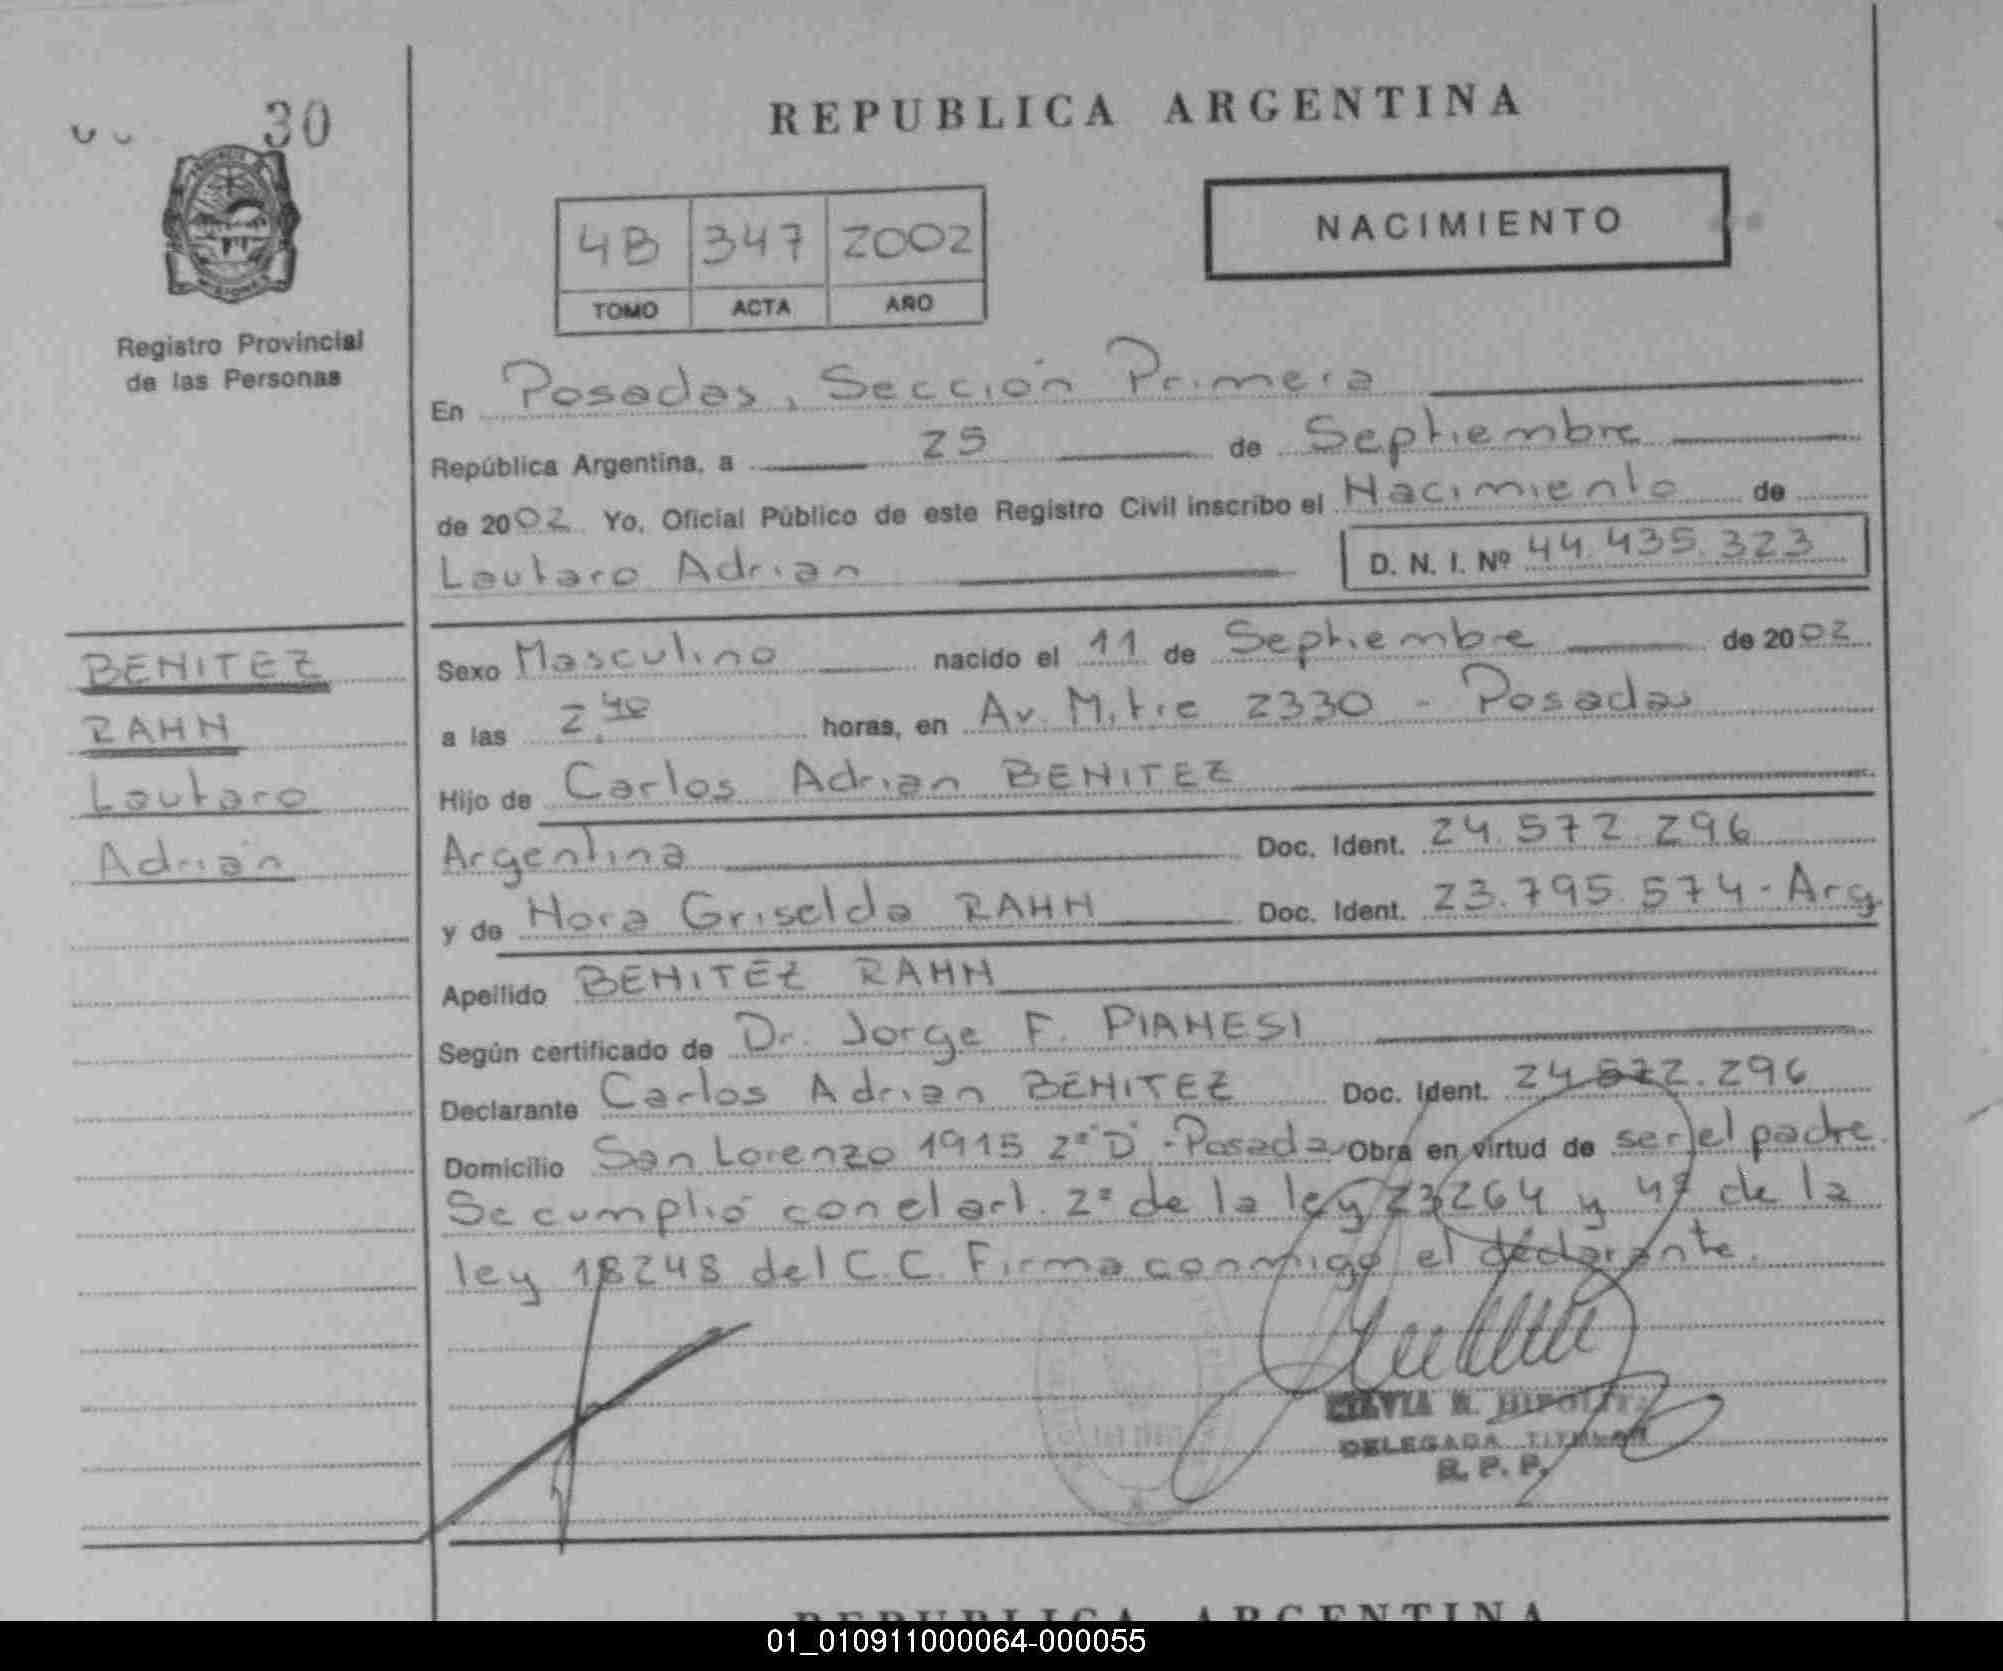 30
REPUBLICA ARGENTINA
NACIMIENTO
4B 347 2002
TOMO ACTA AÑO
Registro Provincial
de las Personas
En Posadas, Sección Primera
República Argentina, a 25 de Septiembre
de 2002 Yo, Oficial Público de este Registro Civil inscribo el Nacimiento de
Lautaro Adrian D. N. I. Nº 44.435.323
BENITEZ
RAHN
Lautaro
Adrián
Sexo Masculino nacido el 11 de Septiembre de 2002
a las 2.40 horas, en Av. Mitre 2330 - Posadas
Hijo de Carlos Adrian BENITEZ
Argentina Doc. Ident. 24.572.296
y de Nora Griselda RAHN Doc. Ident. 23.795.574 - Arg
Apellido BENITEZ RAHN
Según certificado de Dr. Jorge F. PIANESI
Declarante Carlos Adrian BENITEZ Doc. Ident. 24.572.296
Domicilio San Lorenzo 1915 2º "D" - Posadas Obra en virtud de ser el padre.
Se cumplió con el art. 2º de la ley 23264 y 4º de la
ley 18248 del C.C. Firma conmigo el declarante.
DELEGADA TITULAR
R. P. P.
REPUBLICA ARGENTINA
01_010911000064-000055